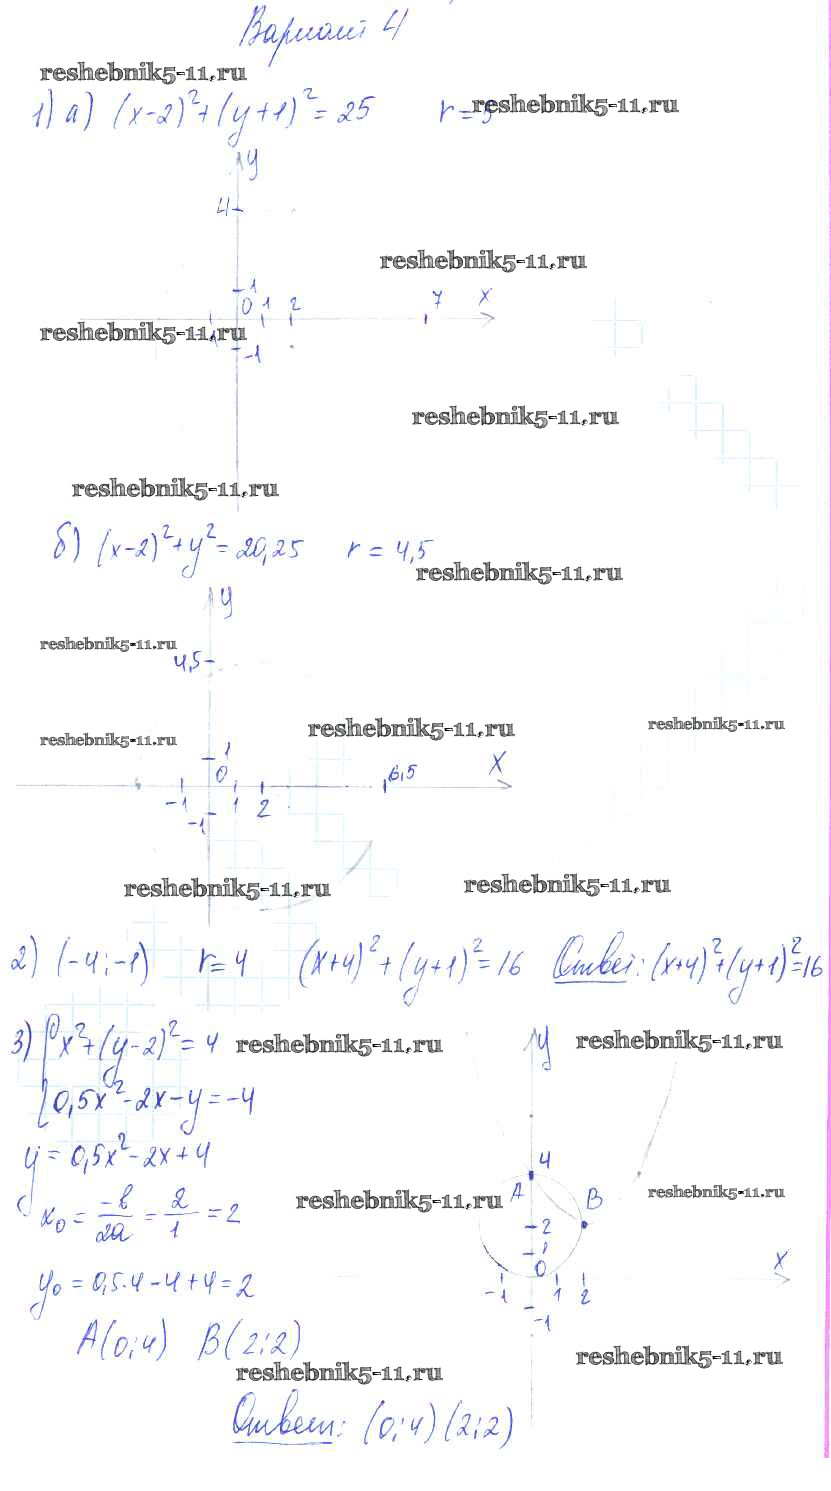 Вариант 4
reshebnik5-11.ru
1) а) (x-2)²+(y+1)²=25 r=5
reshebnik5-11.ru
y
4
reshebnik5-11.ru
1
0 1 2 7 x
reshebnik5-11.ru
-1
-1
reshebnik5-11.ru
reshebnik5-11.ru
б) (x-2)²+y²=20,25 r=4,5
reshebnik5-11.ru
y
reshebnik5-11.ru
4,5
reshebnik5-11.ru
reshebnik5-11.ru
reshebnik5-11.ru
1
0 6,5 x
-1 1 2
-1
reshebnik5-11.ru
reshebnik5-11.ru
2) (-4;-1) r=4 (x+4)²+(y+1)²=16 Ответ: (x+4)²+(y+1)²=16
3) x²+(y-2)²=4
reshebnik5-11.ru
y
reshebnik5-11.ru
0,5x²-2x-y=-4
y=0,5x²-2x+4
4
A B
reshebnik5-11.ru
reshebnik5-11.ru
x₀ = -b/2a = 2/1 = 2
2
1
0 x
y₀ = 0,5·4-4+4=2
-1 1 2
-1
A(0;4) B(2;2)
reshebnik5-11.ru
reshebnik5-11.ru
Ответ: (0;4) (2;2)